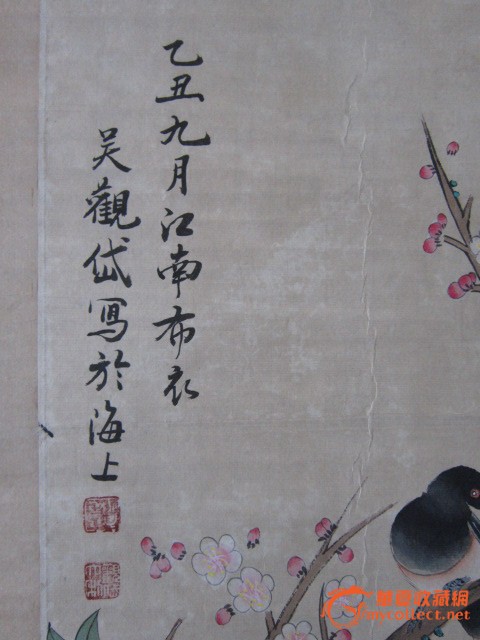 乙丑九月江南布衣
吴觀岱寫於海上
華夏收藏網
mycollect.com